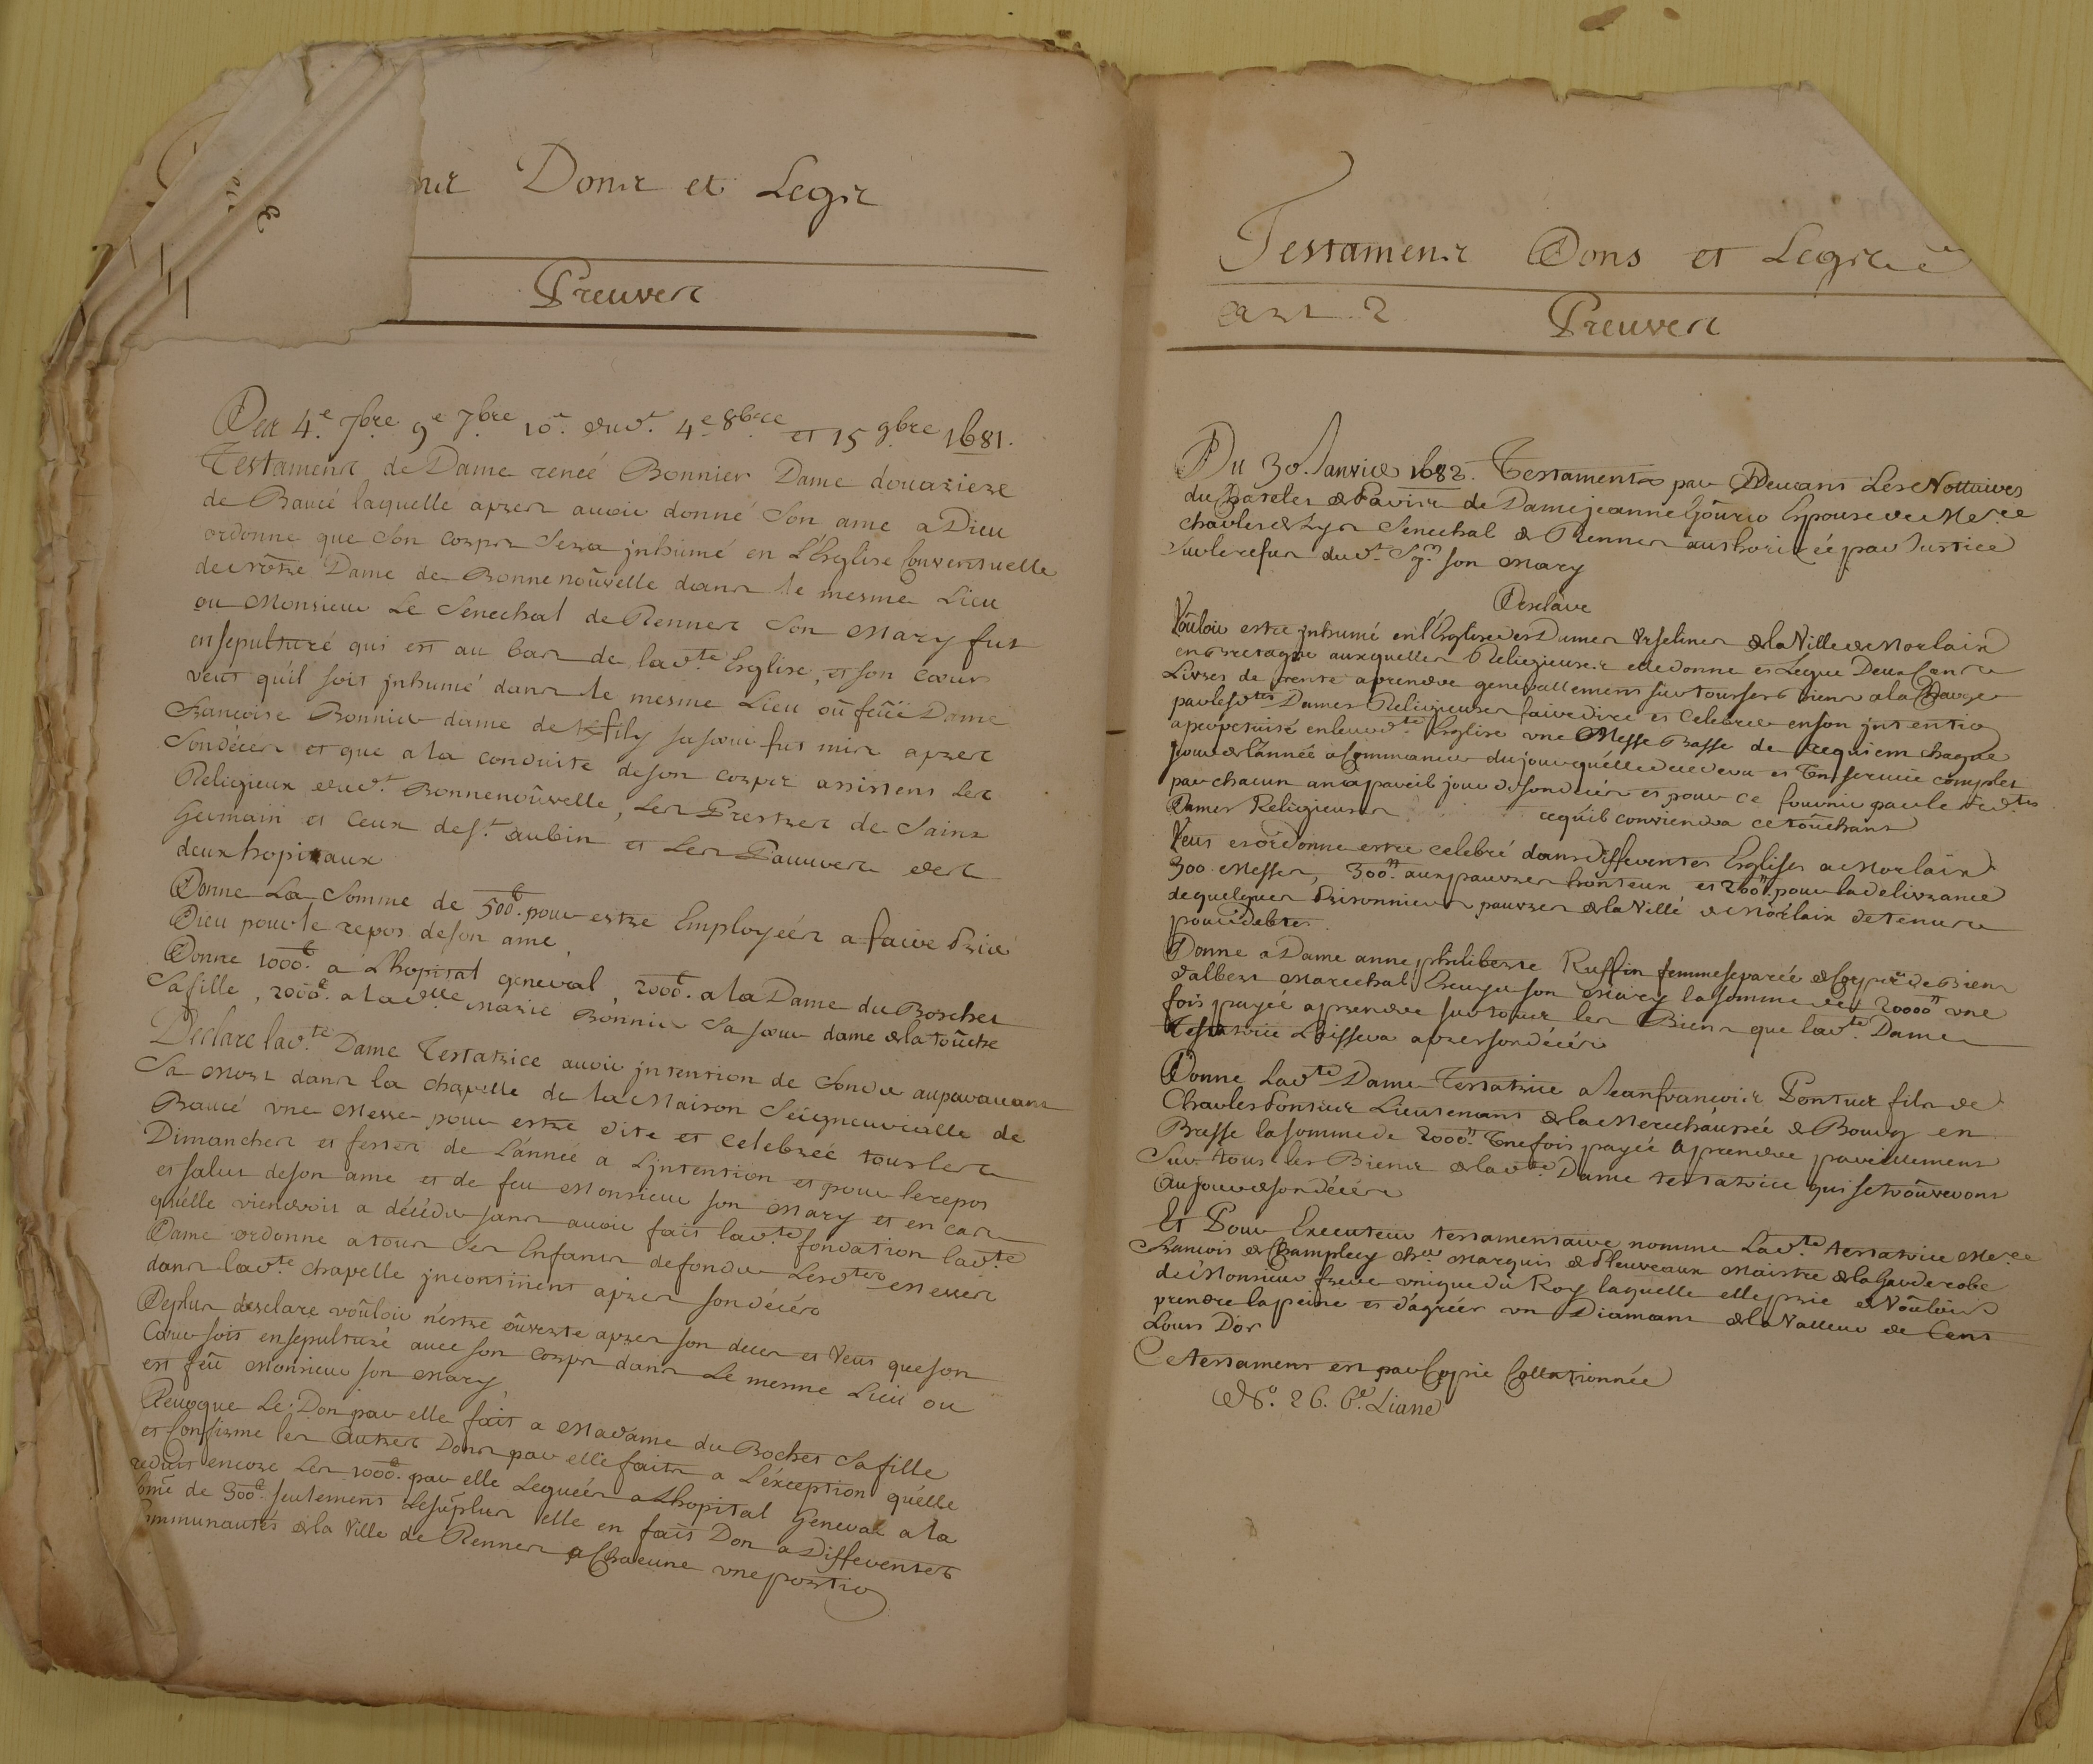 Dons et Legs
Preuves
Des 4e. 7bre 9e 7bre 10e. dud.t 4e 8bre et 15 9bre 1681.
Testament de Dame reneé Bonnier Dame douariere
de Baucé laquelle apres auoir donné Son ame a Dieu
ordonne que Son Corps Sera jnhumé en L'Esglise Conventuelle
de nôtre Dame de Bonne noûvelle dans le mesme Lieu
ou Monsieur Le Senechal de Rennes Son Mary fut
ensepulturé qui est au bas de lad.te Esglise, et son Coeur
veut qu'il soit jnhumé dans le mesme Lieu oû feüe Dame
Francoise Bonnier dame de sa soeur fut mis apres
Son décés et que a la conduite de son corps assistent les
Religieux dud.t Bonnenoûvelle, Les Prestres de Saint
Germain et Ceux de S.t Aubin et Les Pauvres des
deux hopitaux
Donne La Somme de 500tt. pour estre Employeés a faire Prier
Dieu pour le repos de son ame
Donne 1000tt. a L'hopital general, 2000tt. a la Dame du Boschet
Sa fille, 2000tt. a lad.lle Marie Bonnier Sa soeur dame de la toûche
Declare lad.te Dame Testatrice auoir jntention de fonder auparauant
Sa Mort dans la chapelle de la Maison Seigneurialle de
Baucé vne Messe pour estre dite et celebreé tous les
Dimanches et festes de L'année a L'jntention et pour le repos
et salut de son ame et de feu Monsieur son Mary et en cas
qu'elle viendroit a décéder sans auoir fait lad.te fondation lad.te
Dame ordonne a tous ses Enfans de fonder Lesd.tes Messes
dans lad.te chapelle jncontinent apres son décés
Deplus desclare voûloir n'estre oûverte apres son deces et Veut que son
Coeur soit ensepulturé avec son corps dans Le mesme Lieu ou
est feû Monsieur son Mary
Reuoque Le Don par elle fait a Madame du Bochet Sa fille
et Confirme les Autres Dons par elle faits a L'éxception qu'elle
reduit encore Les 1000tt. par elle Legueés a L'hopital General a la
some de 300tt. seulement Lesurplus elle en fait Don a Differentes
Communautés de la Ville de Rennes a Chacune vne portio
Testamens Dons et Legs
Art. 2 Preuves
Du 30. Janvier 1683. Testament par Deuant Les Nottaires
du Chatelet de Paris de Dame jeanne Goûrio Espouse de Mes.re
charles de Lys Senechal de Rennes authoriseé par Justice
Sur le refus dud.t Sg.r son Mary
Desclare
Voûloir estre jnhumé en l'Esglise des Dames Vrselines de la Ville de Morlaix
en Bretagne auxquelles Religieuses elle donne et Legue Deux Cents
Livres de rente a prendre generallement sur tous ses biens a la Charge
par lesd.tes Dames Religieuses faire dire et Celebrer en son jntentio
a perpetuité en leurd.te Esglise vne Messe Basse de requiem chaque
jour de l'année a Commancer du jour qu'elle decedera et Vn seruice complet
par chacun an a pareil jour de son décés et pour ce fournir par lesd.tes
Dames Religieuses ce qu'il conviendra ce toûchant
Veut et ordonne estre celebré dans differentes Esglises a Morlaix
300 Messes, 300tt. aux pauvres honteux et 200tt. pour la delivrance
de quelques Prisonniers pauvres de la Ville de Morlaix detenus
pour debtes.
Donne a Dame anne philiberte Ruffin femme separeé de Corps et de Biens
d'albert Marechal Escuyer son Mary la somme de 20000tt vne
fois payée a prendre sur tous les Biens que lad.te Dame
Testatrice Laissera apres son décés
Donne Lad.te Dame Testatrice a Jean francois Pontus fils de
Charles Pontus Lieutenant de la Marechaussée de Bourg en
Bresse la somme de 2000tt. Vne fois payée a prendre pareillement
Sur tous les Biens de lad.te Dame testatrice qui se troûveront
Au jour de son décés
Et Pour Executeur testamentaire nomme Lad.te testatrice Mes.re
Francois de Champlecy che.r Marquis de Pleuveaux Maistre de la Garderobe
de Monsieur frere vnique du Roy laquelle elle prie de Voûloir
prendre la peine et d'agréer vn Diamant de la Valleur de Cent
Louis D'or
Ce testament est par Copie Collationnée
N.o 26. 6e. Liane